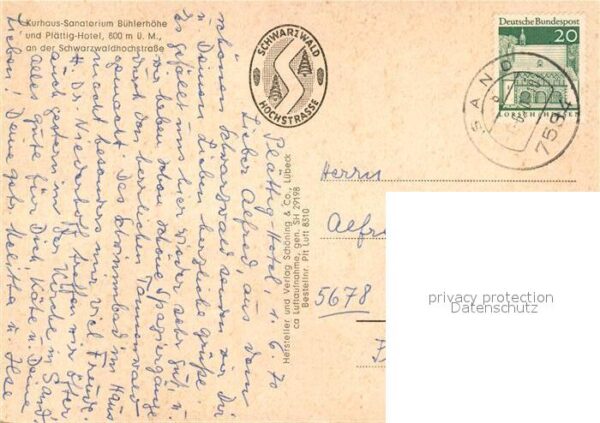 Kurhaus-Sanatorium Bühlerhöhe
und Plättig-Hotel, 800 m ü. M.,
an der Schwarzwaldhochstraße
SCHWARZWALD
HOCHSTRASSE
Deutsche Bundespost
20
LORSCH/HESSEN
SAND
759
Plättig-Hotel, 1.6.70
Lieber Alfred, aus dem
schönen Schwarzwald senden wir Dir
u. Deinen Lieben herzliche Grüße.
Es gefällt uns hier wieder sehr gut u.
wir haben schon schöne Spaziergänge
durch den herrlichen Tannenwald
gemacht. Das Schwimmbad im Haus
macht besonders mir viel Freude.
H. Dr. Niederhoff treffen wir öfter
auch gestern in der Kirche in Sand.
Alles gute für Dich, Käthe u. Deine
Lieben! Deine Melitta u. Ilse
Hersteller und Verlag Schöning & Co., Lübeck
ca Luftaufnahme, gen. SH 29198
Bestellnr. Plt Luft 8310
Herrn
Alfr
5678
privacy protection
Datenschutz